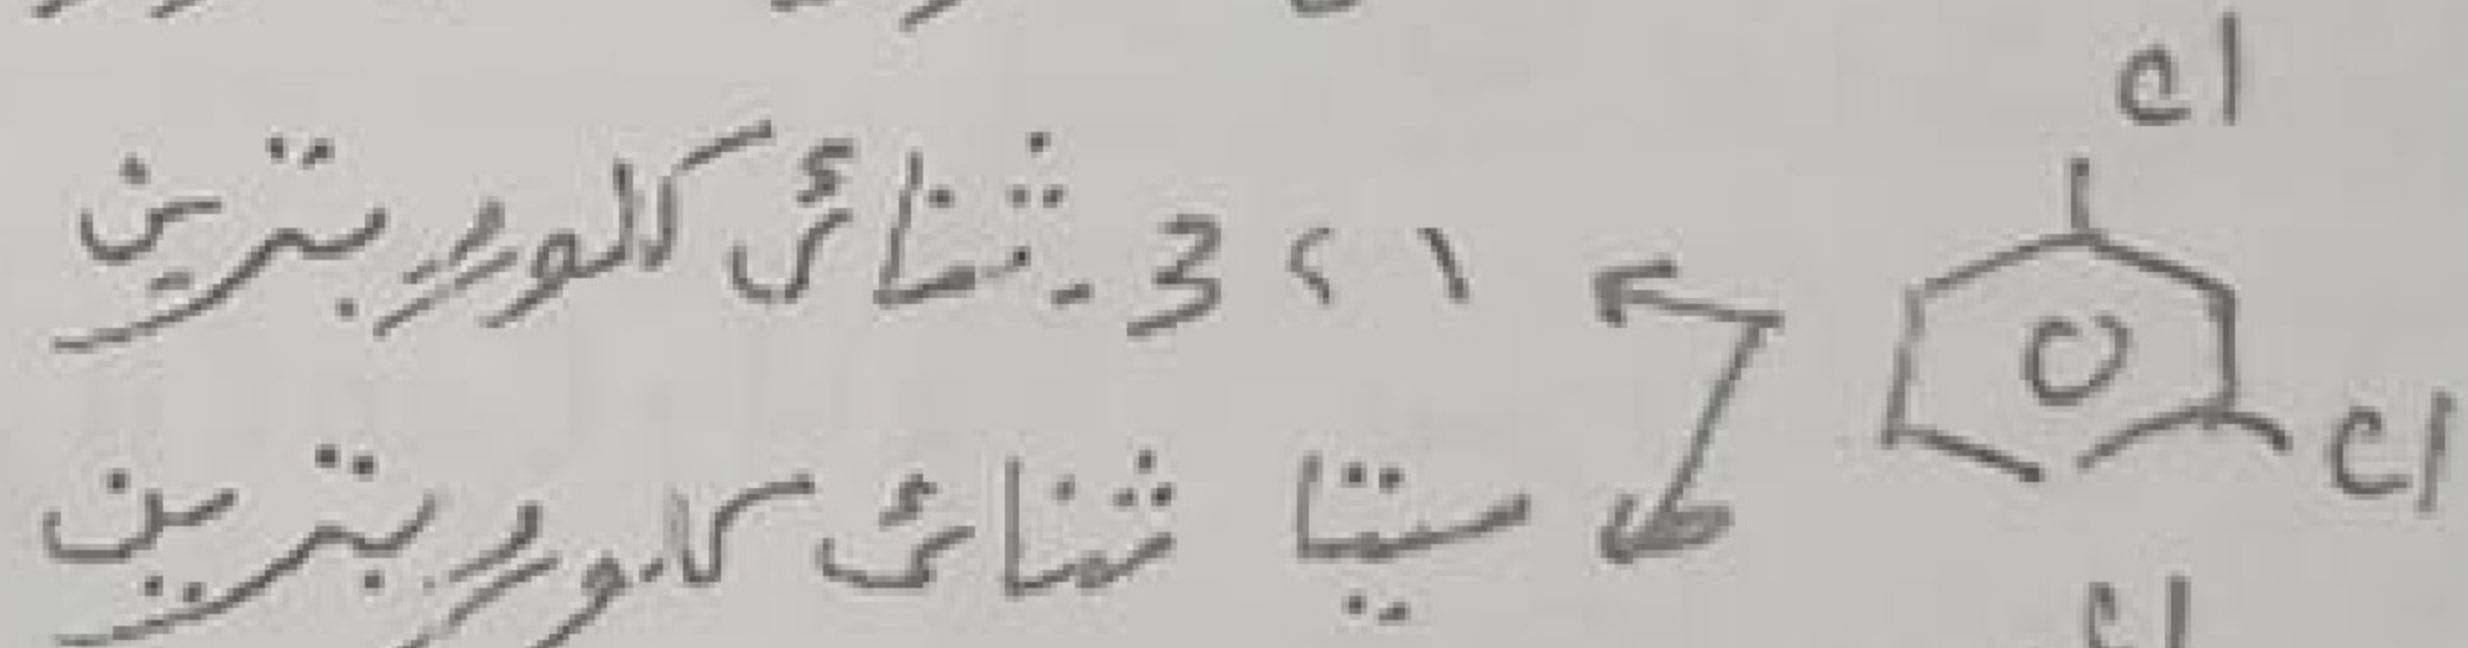 Cl
١ ، 3 - ثنائى كلورو بنزين
Cl
ميتا ثنائى كلورو بنزين